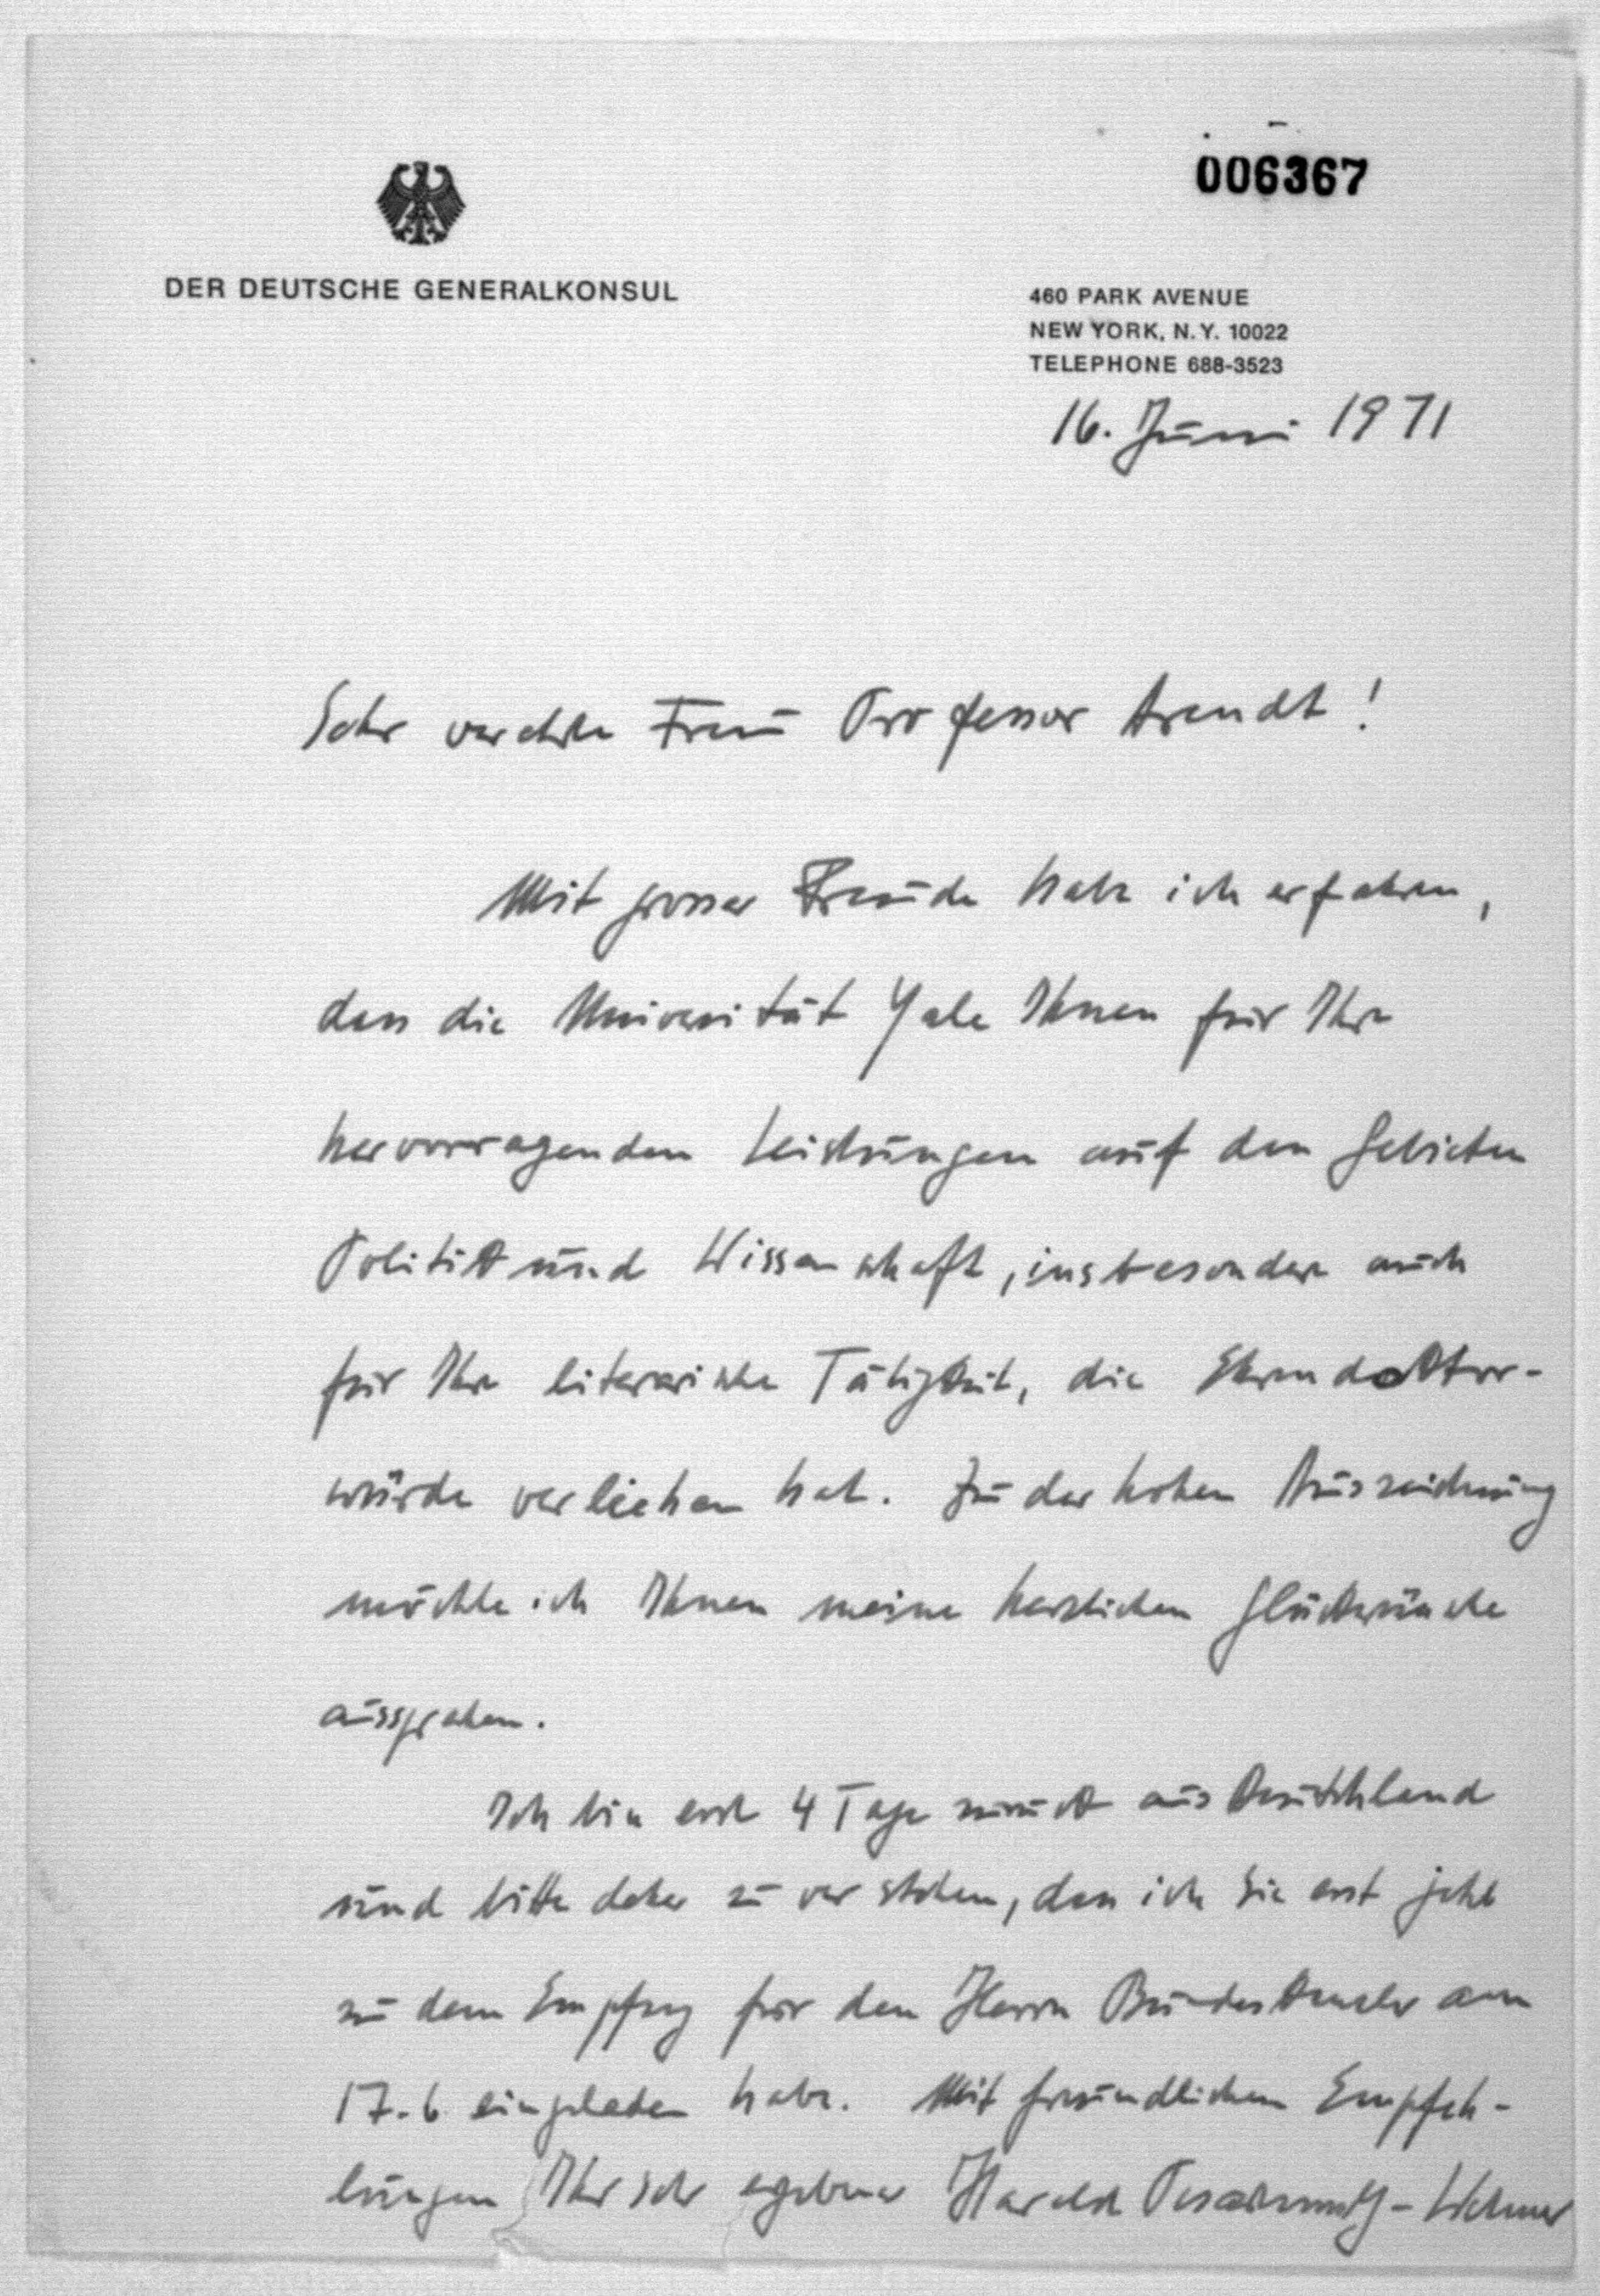 006367
DER DEUTSCHE GENERALKONSUL
460 PARK AVENUE
NEW YORK, N.Y. 10022
TELEPHONE 688-3523
16. Juni 1971
Sehr verehrte Frau Professor Arendt!
Mit grosser Freude habe ich erfahren,
dass die Universität Yale Ihnen für Ihre
hervorragenden Leistungen auf den Gebieten
Politik und Wissenschaft, insbesondere auch
für Ihre literarische Tätigkeit, die Ehrendoktor-
würde verliehen hat. Zu der hohen Auszeichnung
möchte ich Ihnen meine herzlichen Glückwünsche
aussprechen.
Ich bin erst 4 Tage zurück aus Deutschland
und bitte daher zu verstehen, dass ich Sie erst jetzt
zu dem Empfang für den Herrn Bundeskanzler am
17.6 eingeladen habe. Mit freundlichen Empfeh-
lungen Ihr sehr ergebener Harald